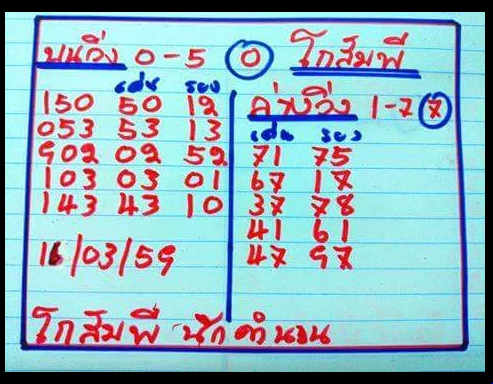 บนวิ่ง 0-5 0 โกสัมพี
เด่น รอง
150 50 12
053 53 13
902 02 52
103 03 01
143 43 10
16/03/59
ล่างวิ่ง 1-7 7
เด่น รอง
71 75
67 17
37 78
41 61
47 97
โกสัมพี นักคำนวน